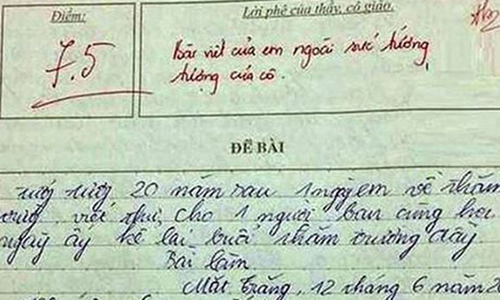 Điểm:
Lời phê của thầy, cô giáo.
7.5
Bài viết của em ngoài sức tưởng
tượng của cô.
ĐỀ BÀI
20 năm sau 1 ngày em về thăm
viết thư cho 1 người bạn cùng học
ngày ấy kể lại buổi thăm trường đầy.
Bài làm
Mặt Trăng, 12 tháng 6 năm 2